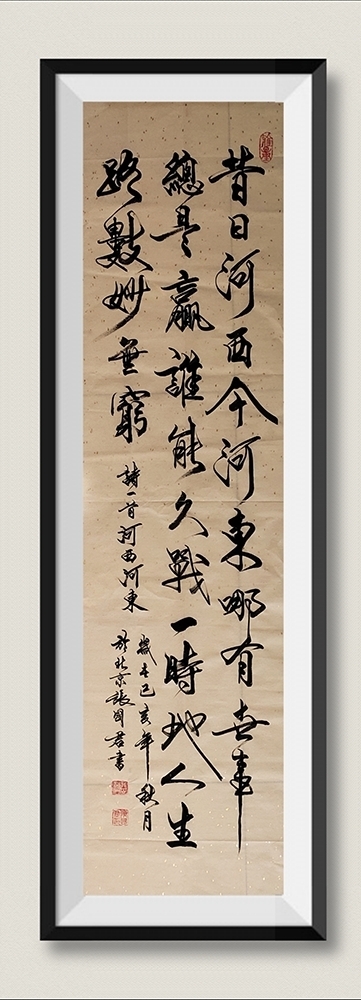 昔日河西今河東哪有世事
總是贏誰能久戰一時地人生
路數妙無窮
詩一首河西河東
歲在己亥年秋月
於北京張國君書